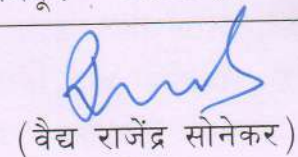 (वैद्य राजेंद्र सोनेकर)